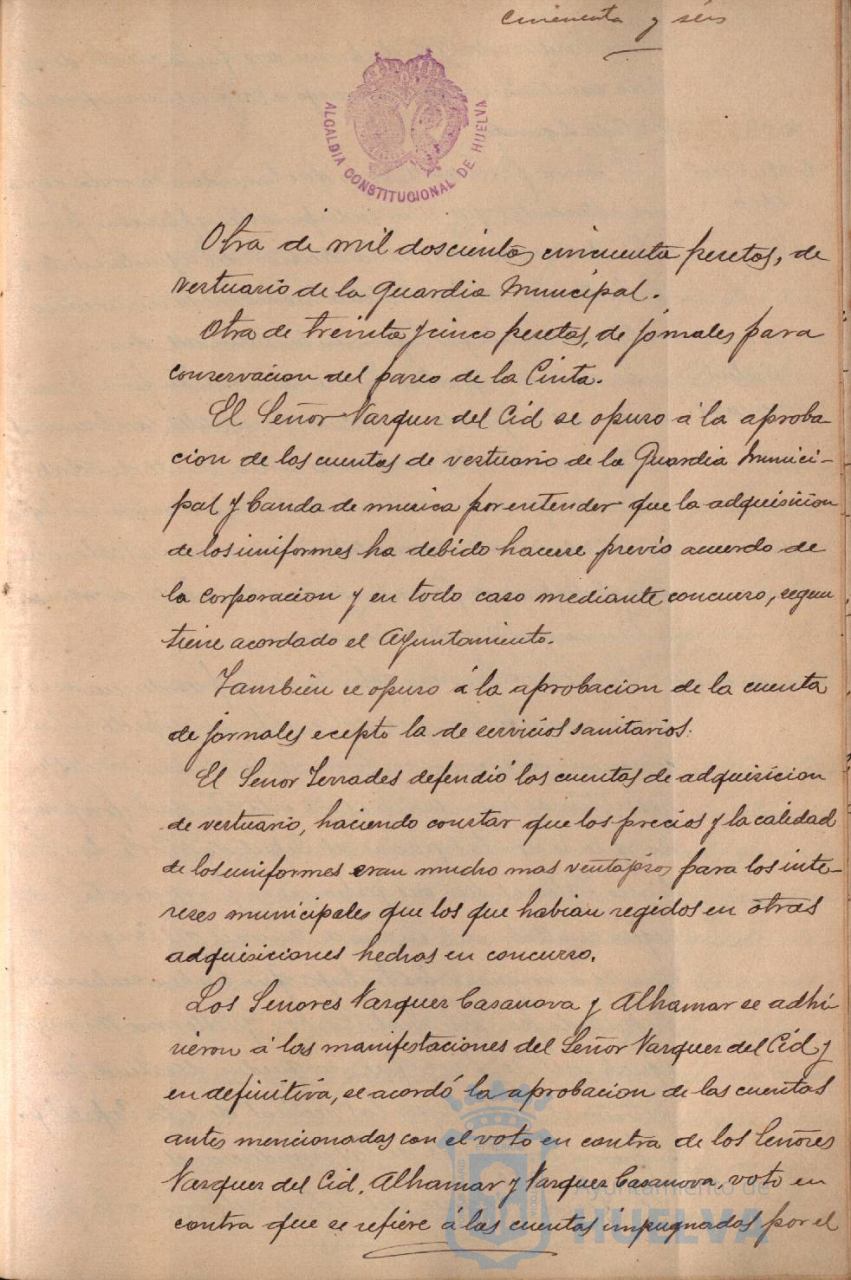 cincuenta y séis
ALCALDIA CONSTITUCIONAL DE HUELVA
Otra de mil doscientas cincuenta pesetas, de
vestuario de la Guardia Municipal.
Otra de treinta y cinco pesetas, de jornales para
conservacion del paseo de la Cinta.
El Señor Vazquez del Cid se opuso á la aproba
cion de las cuentas de vestuario de la Guardia Munici-
pal y banda de musica por entender que la adquisicion
de los uniformes ha debido hacerse previo acuerdo de
la corporacion y en todo caso mediante concurso, segun
tiene acordado el Ayuntamiento.
Tambien se opuso á la aprobacion de la cuenta
de jornales ecepto la de servicios sanitarios.
El Señor Terrades defendió las cuentas de adquisicion
de vestuario, haciendo constar que los precios y la calidad
de los uniformes eran mucho mas ventajosos para los inte-
reses municipales que los que habian regidos en otras
adquisiciones hechas en concurso.
Los Señores Vazquez Casanova y Alhamar se adhi
rieron á las manifestaciones del Señor Vazquez del Cid y
en definitiva, se acordó la aprobacion de las cuentas
antes mencionadas con el voto en contra de los Señores
Vazquez del Cid, Alhamar y Vazquez Casanova, voto en
contra que se refiere á las cuentas impugnadas por el
Ayuntamiento de
HUELVA